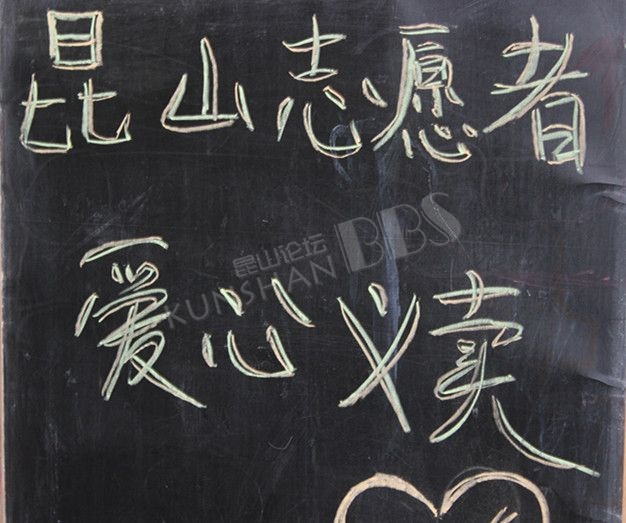 昆山志愿者
昆山论坛 BBS
KUNSHAN
爱心义卖